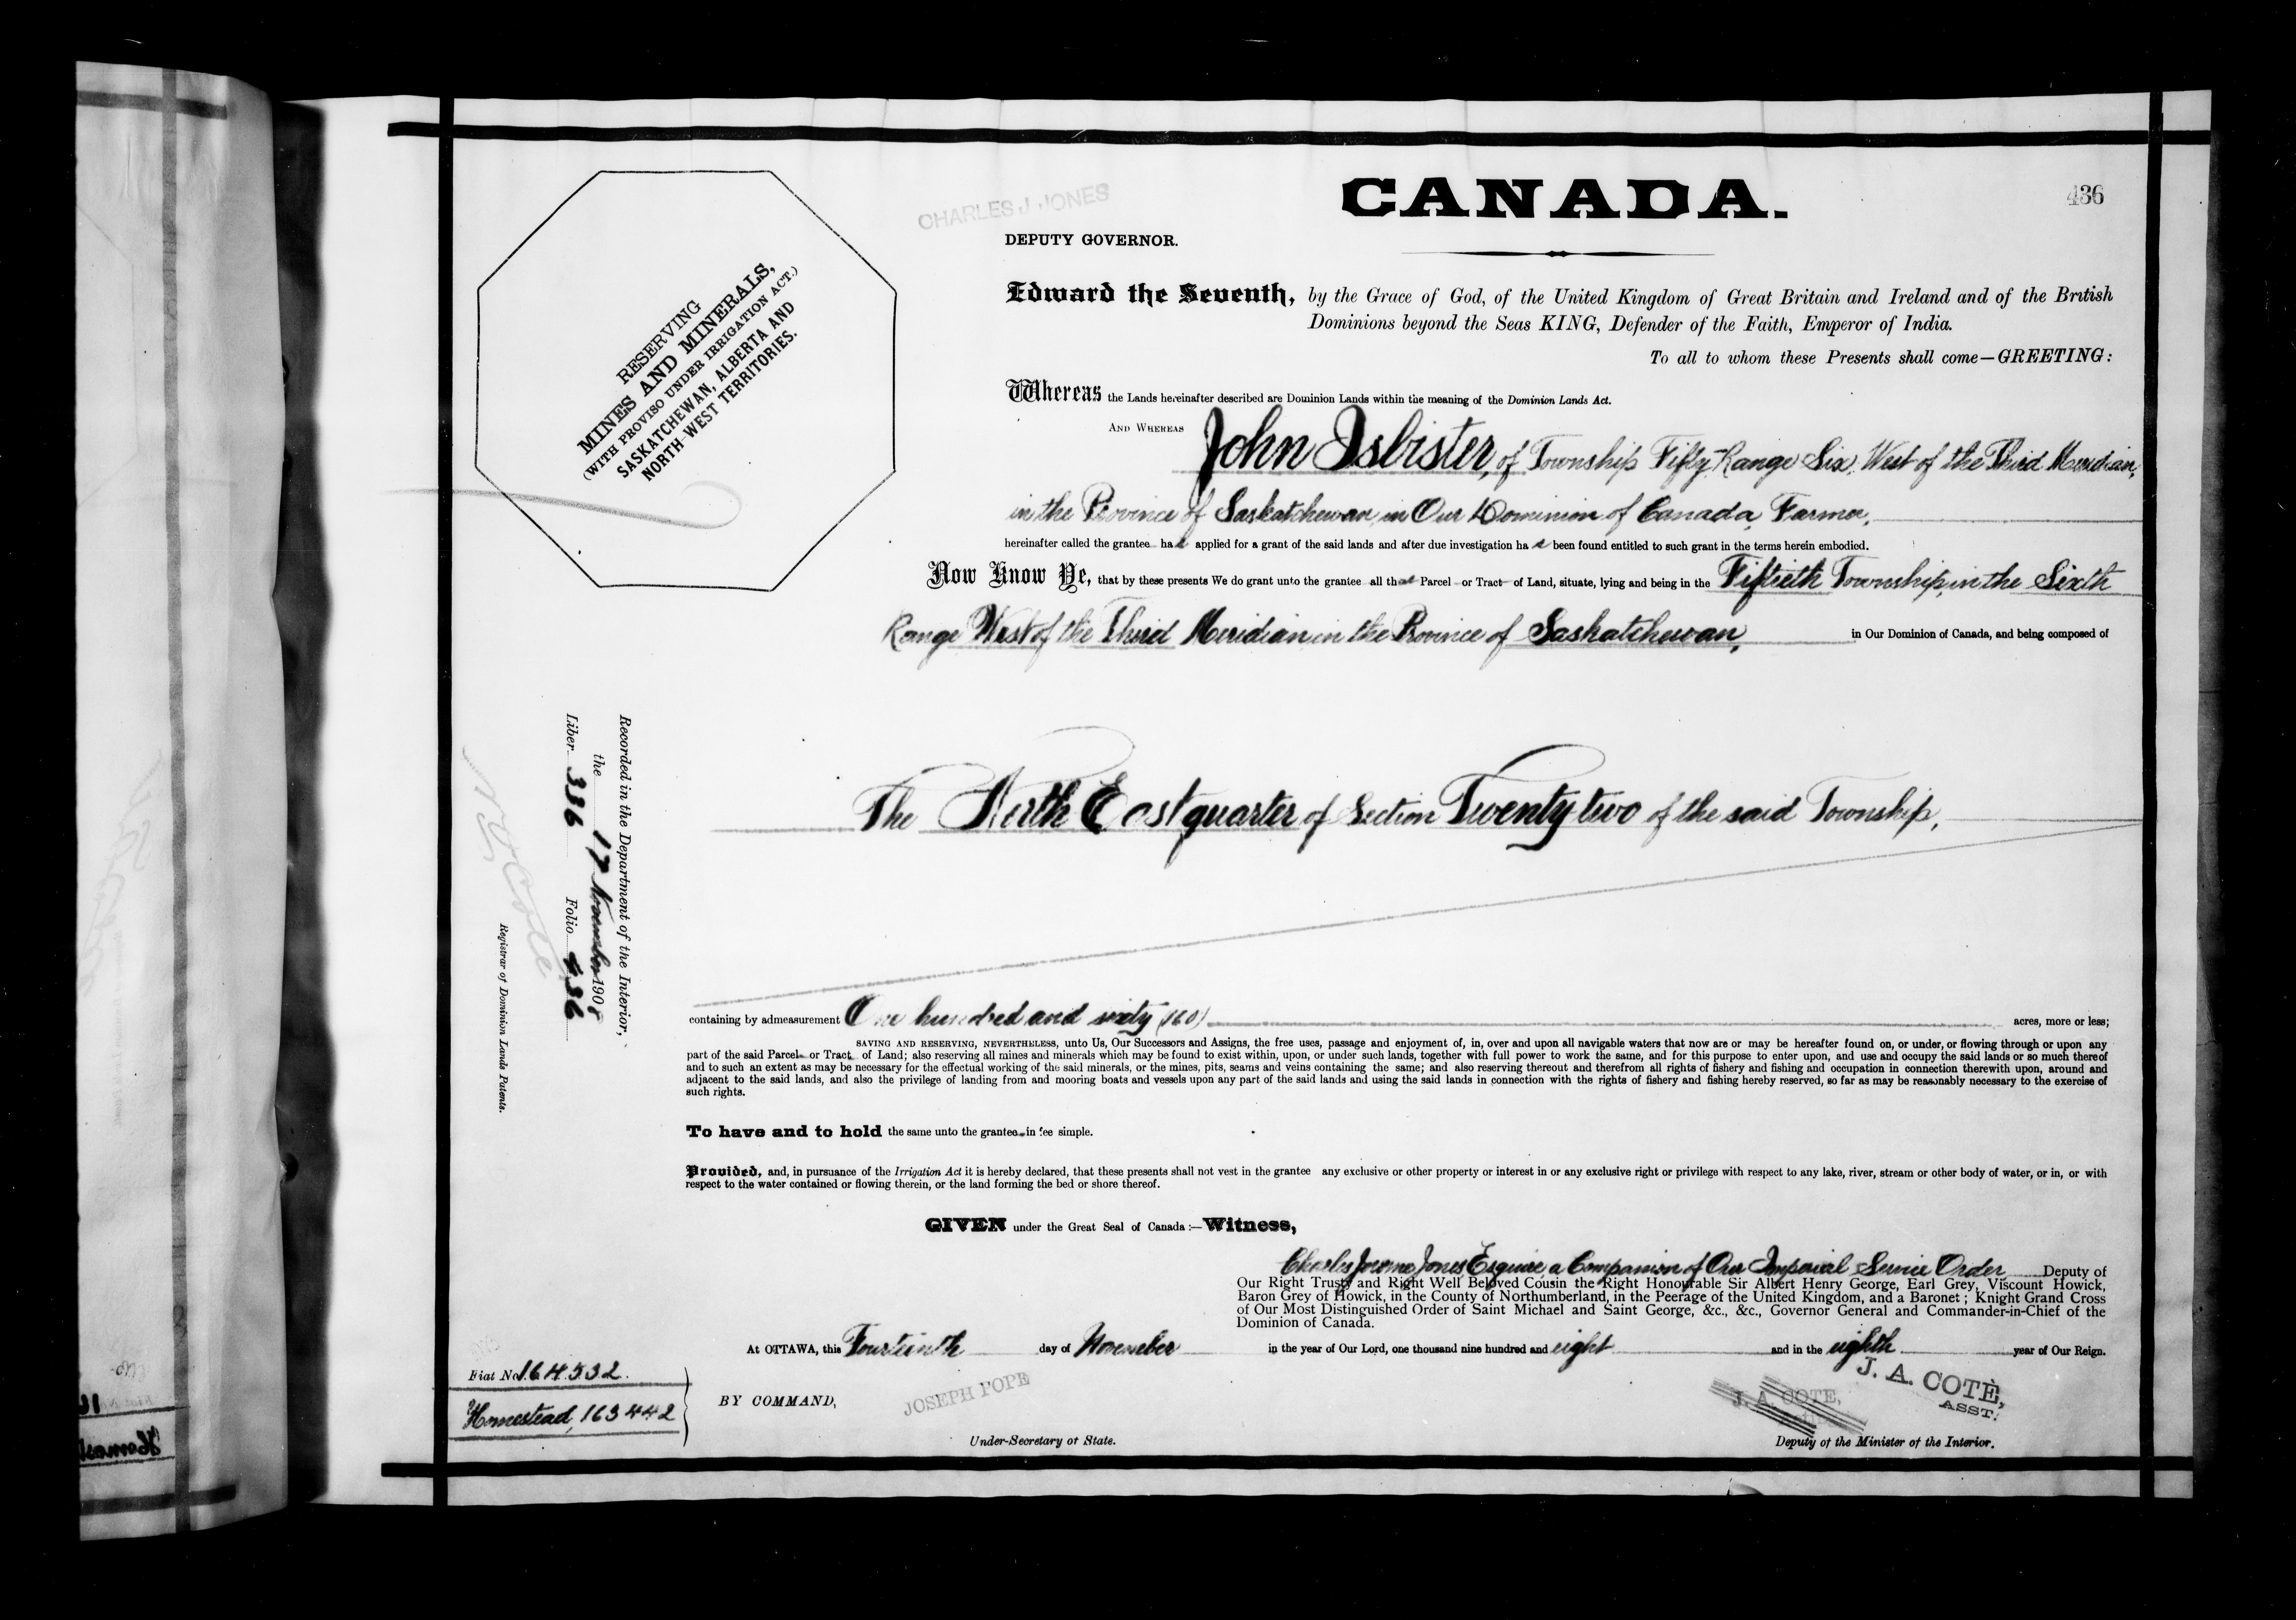 CANADA.
436
CHARLES J. JONES
DEPUTY GOVERNOR.
RESERVING
MINES AND MINERALS,
(WITH PROVISO UNDER IRRIGATION ACT.)
SASKATCHEWAN, ALBERTA AND
NORTH-WEST TERRITORIES.
Edward the Seventh, by the Grace of God, of the United Kingdom of Great Britain and Ireland and of the British
Dominions beyond the Seas KING, Defender of the Faith, Emperor of India.
To all to whom these Presents shall come—GREETING:
Whereas the Lands hereinafter described are Dominion Lands within the meaning of the Dominion Lands Act.
AND WHEREAS John Isbister, of Township Fifty Range Six, West of the Third Meridian,
in the Province of Saskatchewan, in Our Dominion of Canada, Farmer,
hereinafter called the grantee has applied for a grant of the said lands and after due investigation has been found entitled to such grant in the terms herein embodied.
Now Know Ye, that by these presents We do grant unto the grantee all that Parcel or Tract of Land, situate, lying and being in the Fiftieth Township, in the Sixth
Range West of the Third Meridian in the Province of Saskatchewan, in Our Dominion of Canada, and being composed of
The North East quarter of Section Twenty two of the said Township,
Recorded in the Department of the Interior,
the 17 November 1908
Liber 336 Folio 436
N. O. Coté
Registrar of Dominion Lands Patents.
containing by admeasurement One hundred and sixty (160) acres, more or less;
SAVING AND RESERVING, NEVERTHELESS, unto Us, Our Successors and Assigns, the free uses, passage and enjoyment of, in, over and upon all navigable waters that now are or may be hereafter found on, or under, or flowing through or upon any
part of the said Parcel or Tract of Land; also reserving all mines and minerals which may be found to exist within, upon, or under such lands, together with full power to work the same, and for this purpose to enter upon, and use and occupy the said lands or so much thereof
and to such an extent as may be necessary for the effectual working of the said minerals, or the mines, pits, seams and veins containing the same; and also reserving thereout and therefrom all rights of fishery and fishing and occupation in connection therewith upon, around and
adjacent to the said lands, and also the privilege of landing from and mooring boats and vessels upon any part of the said lands and using the said lands in connection with the rights of fishery and fishing hereby reserved, so far as may be reasonably necessary to the exercise of
such rights.
To have and to hold the same unto the grantee in fee simple.
Provided, and, in pursuance of the Irrigation Act it is hereby declared, that these presents shall not vest in the grantee any exclusive or other property or interest in or any exclusive right or privilege with respect to any lake, river, stream or other body of water, or in, or with
respect to the water contained or flowing therein, or the land forming the bed or shore thereof.
GIVEN under the Great Seal of Canada:—Witness,
Charles Jerome Jones, Esquire, a Companion of Our Imperial Service Order Deputy of
Our Right Trusty and Right Well Beloved Cousin the Right Honourable Sir Albert Henry George, Earl Grey, Viscount Howick,
Baron Grey of Howick, in the County of Northumberland, in the Peerage of the United Kingdom, and a Baronet; Knight Grand Cross
of Our Most Distinguished Order of Saint Michael and Saint George, &c., &c., Governor General and Commander-in-Chief of the
Dominion of Canada.
At OTTAWA, this Fourteenth day of November in the year of Our Lord, one thousand nine hundred and eight and in the eighth year of Our Reign.
Fiat No 164532.
Homestead, 163442
BY COMMAND,
JOSEPH POPE
Under-Secretary of State.
J. A. COTE,
J. A. COTÈ,
ASST.
Deputy of the Minister of the Interior.